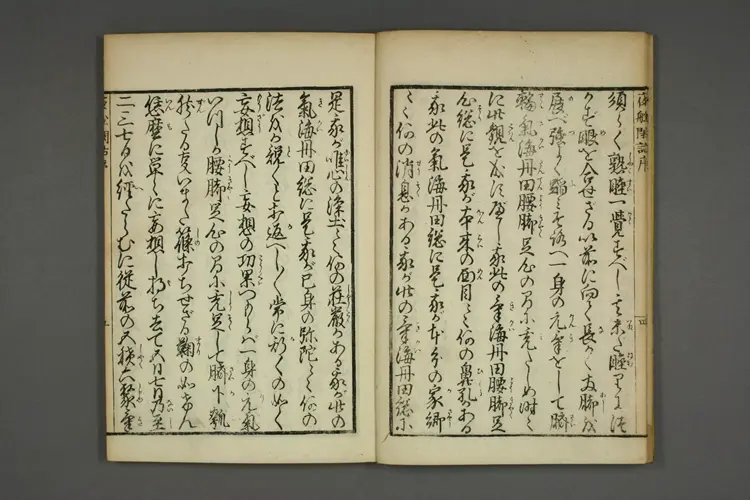 夜船閑話序
須らく熟睡一覚すべし其未だ睡りにつ
かず眼を合せざる以前に向て長く両脚を
展べ強く踏みそろへ一身の元気をして臍
輪気海丹田腰脚足心の間に充たしめ時々
に此観を成すべし我此の気海丹田腰脚足
心総に是我が本来の面目々々何の鼻孔かある
我此の気海丹田総に是我が本分の家郷
々々何の消息かある我が此の気海丹田総に
是我が唯心の浄土々々何の荘厳かある我が此の
気海丹田総に是我が己身の弥陀々々何の
法をか説くと打返し〳〵常に斯くの如く
妄想すべし妄想の功果つもらば一身の元気
いつしか腰脚足心の間に充足して臍下瓠
然たる事いまだ篠打ちせざる鞠の如けん
恁麼に単々に妄想し将ち去て五日七日乃至
二三七日を経たらむに従前の五積六聚気